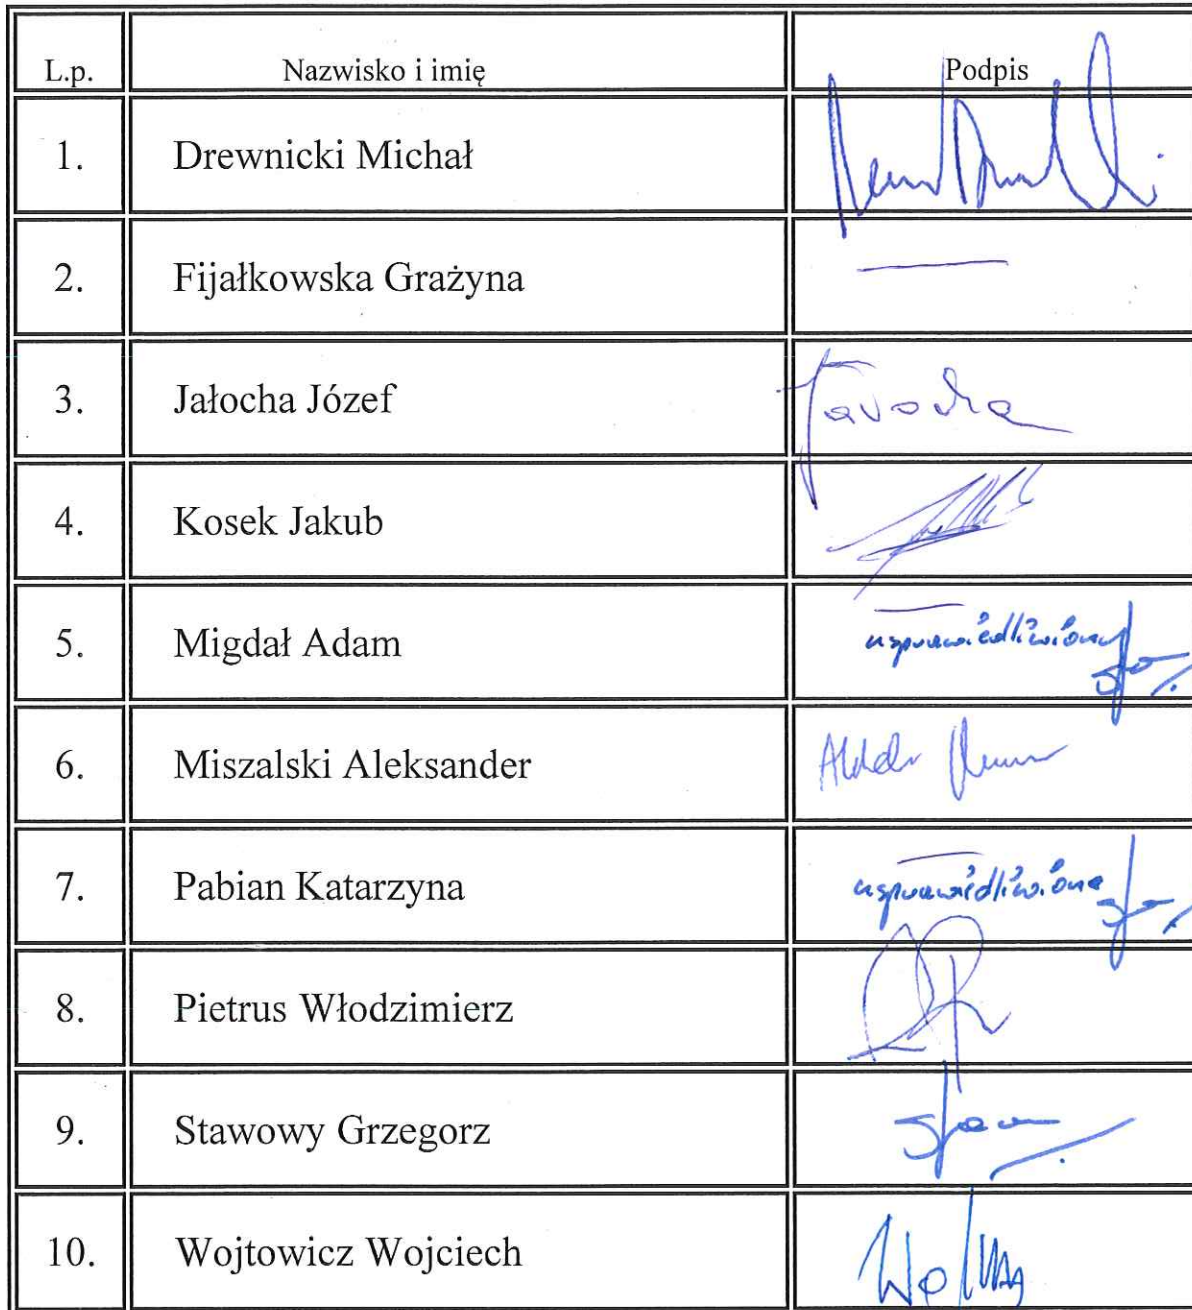 L.p. Nazwisko i imię Podpis
1. Drewnicki Michał
2. Fijałkowska Grażyna
3. Jałocha Józef Jałocha
4. Kosek Jakub
5. Migdał Adam usprawiedliwiony
6. Miszalski Aleksander
7. Pabian Katarzyna usprawiedliwiona
8. Pietrus Włodzimierz
9. Stawowy Grzegorz
10. Wojtowicz Wojciech